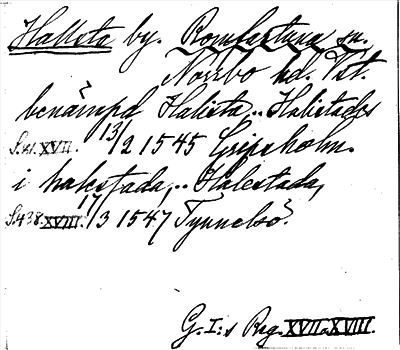 Hallsta by. Romfartuna sn.
Norrbo hd. Vst.
benämnd Halista,.. Halistades
XVII. 13/2 1545 Gripsholm.
i halestada,.. Halestada,
S.438. XVIII. 17/3 1547 Tynnelsö.
G.I:s Reg. XVII. XVIII.